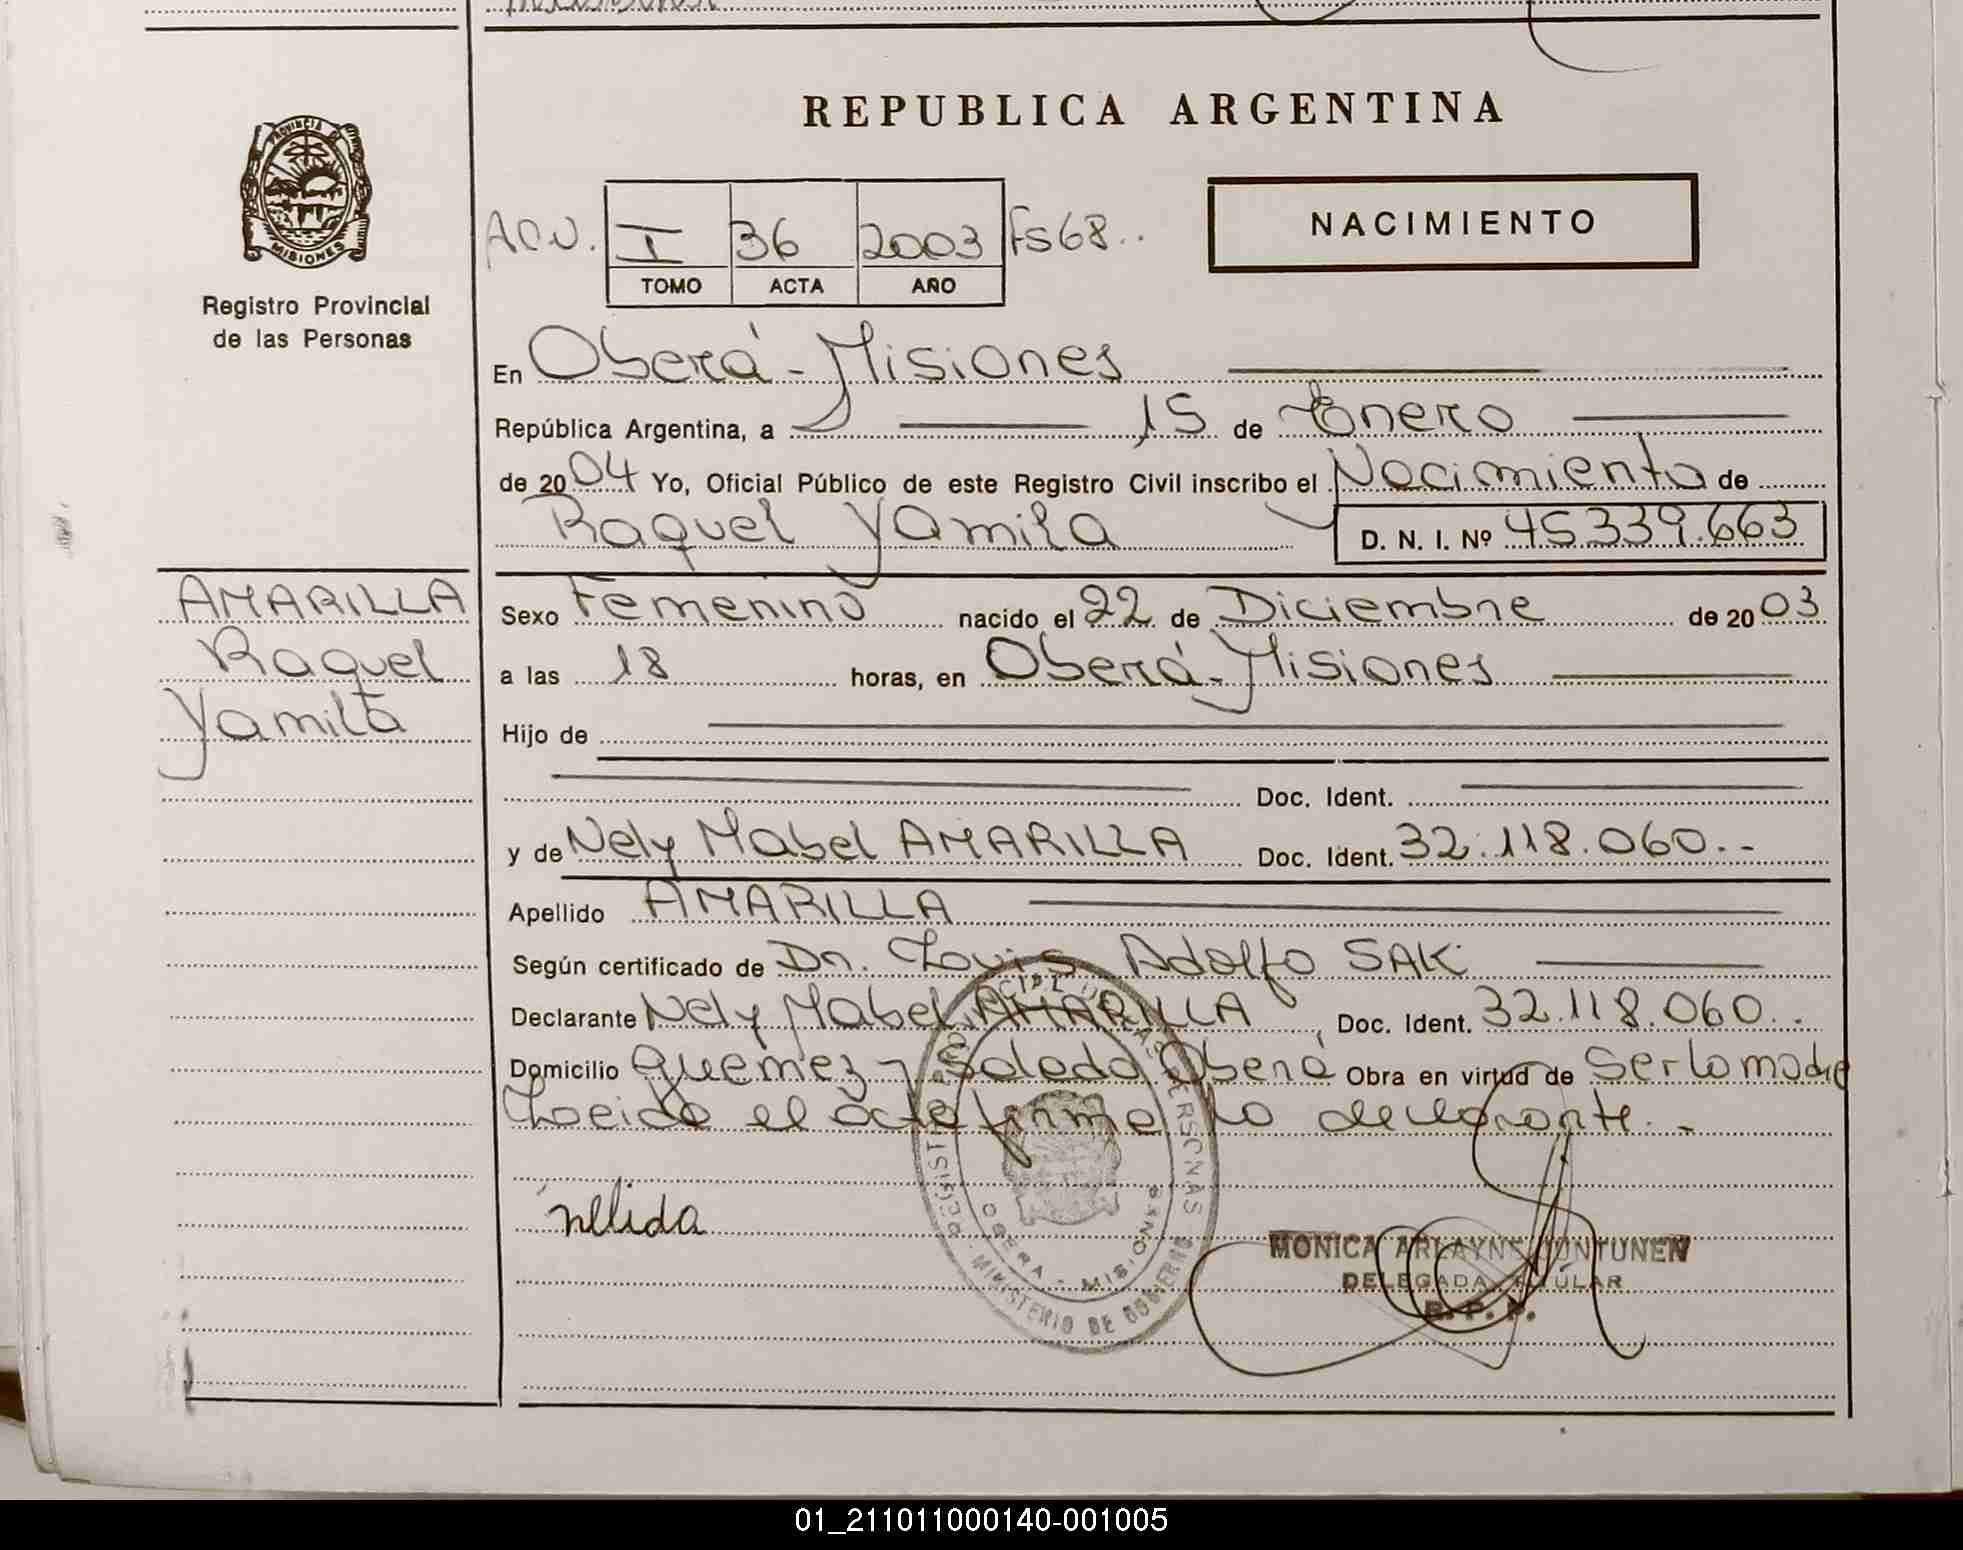 REPUBLICA ARGENTINA
PROVINCIA DE
MISIONES
Registro Provincial
de las Personas
NACIMIENTO
I 36 2003 Fs 68..
TOMO ACTA AÑO
En Oberá - Misiones
República Argentina, a 15 de Enero
de 2004 Yo, Oficial Público de este Registro Civil inscribo el Nacimiento de
Raquel Yamila D. N. I. Nº 45.339.663
AMARILLA
Raquel
Yamila
Sexo Femenino nacido el 22 de Diciembre de 2003
a las 18 horas, en Oberá - Misiones
Hijo de
Doc. Ident.
y de Nely Mabel AMARILLA Doc. Ident. 32.118.060.-
Apellido AMARILLA
Según certificado de Dr. Luis Adolfo SAK
Declarante Nely Mabel AMARILLA, Doc. Ident. 32.118.060..
Domicilio Guemez y Salado Oberá Obra en virtud de Ser la madre
Leida el acta firma la declarante.-
nelida
MINISTERIO DE GOBIERNO
OBERA - MISIONES
MONICA ARLAYNE JUNTUNEN
DELEGADA TITULAR
R. P. P.
01_211011000140-001005